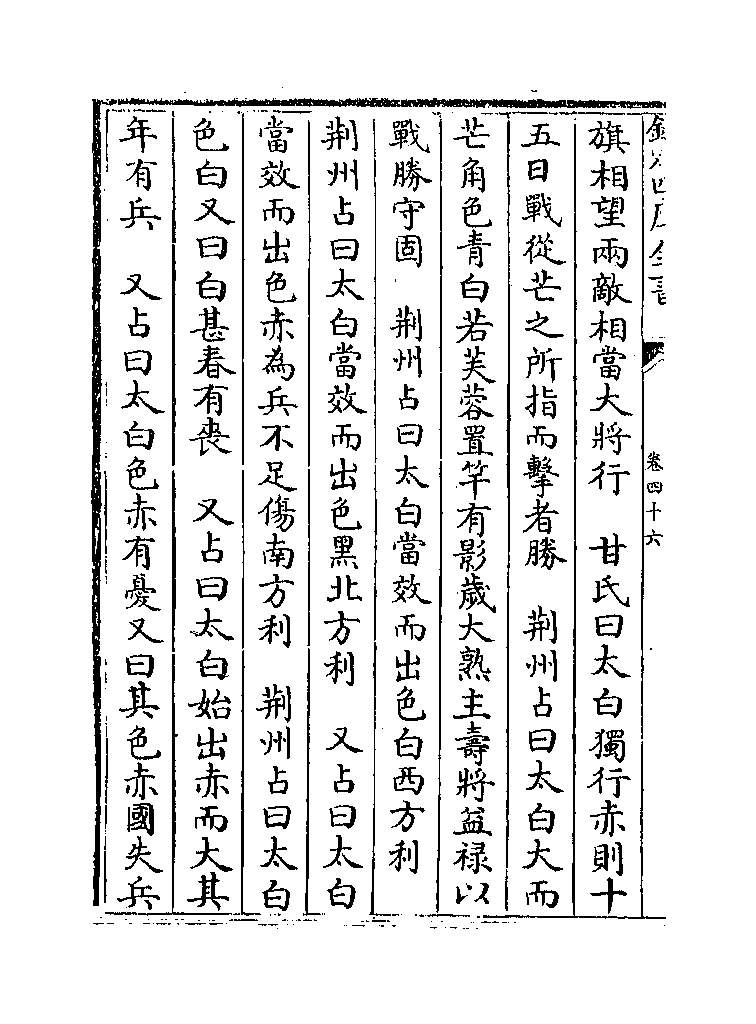 欽定四庫全書
卷四十六
旗相望兩敵相當大將行　甘氏曰太白獨行赤則十
五日戰從芒之所指而擊者勝　荆州占曰太白大而
芒角色青白若芙蓉置竿有影歲大熟主壽將益禄以
戰勝守固　荆州占曰太白當效而出色白西方利
荆州占曰太白當效而出色黑北方利　又占曰太白
當效而出色赤為兵不足傷南方利　荆州占曰太白
色白又曰白甚春有喪　又占曰太白始出赤而大其
年有兵　又占曰太白色赤有憂又曰其色赤國失兵